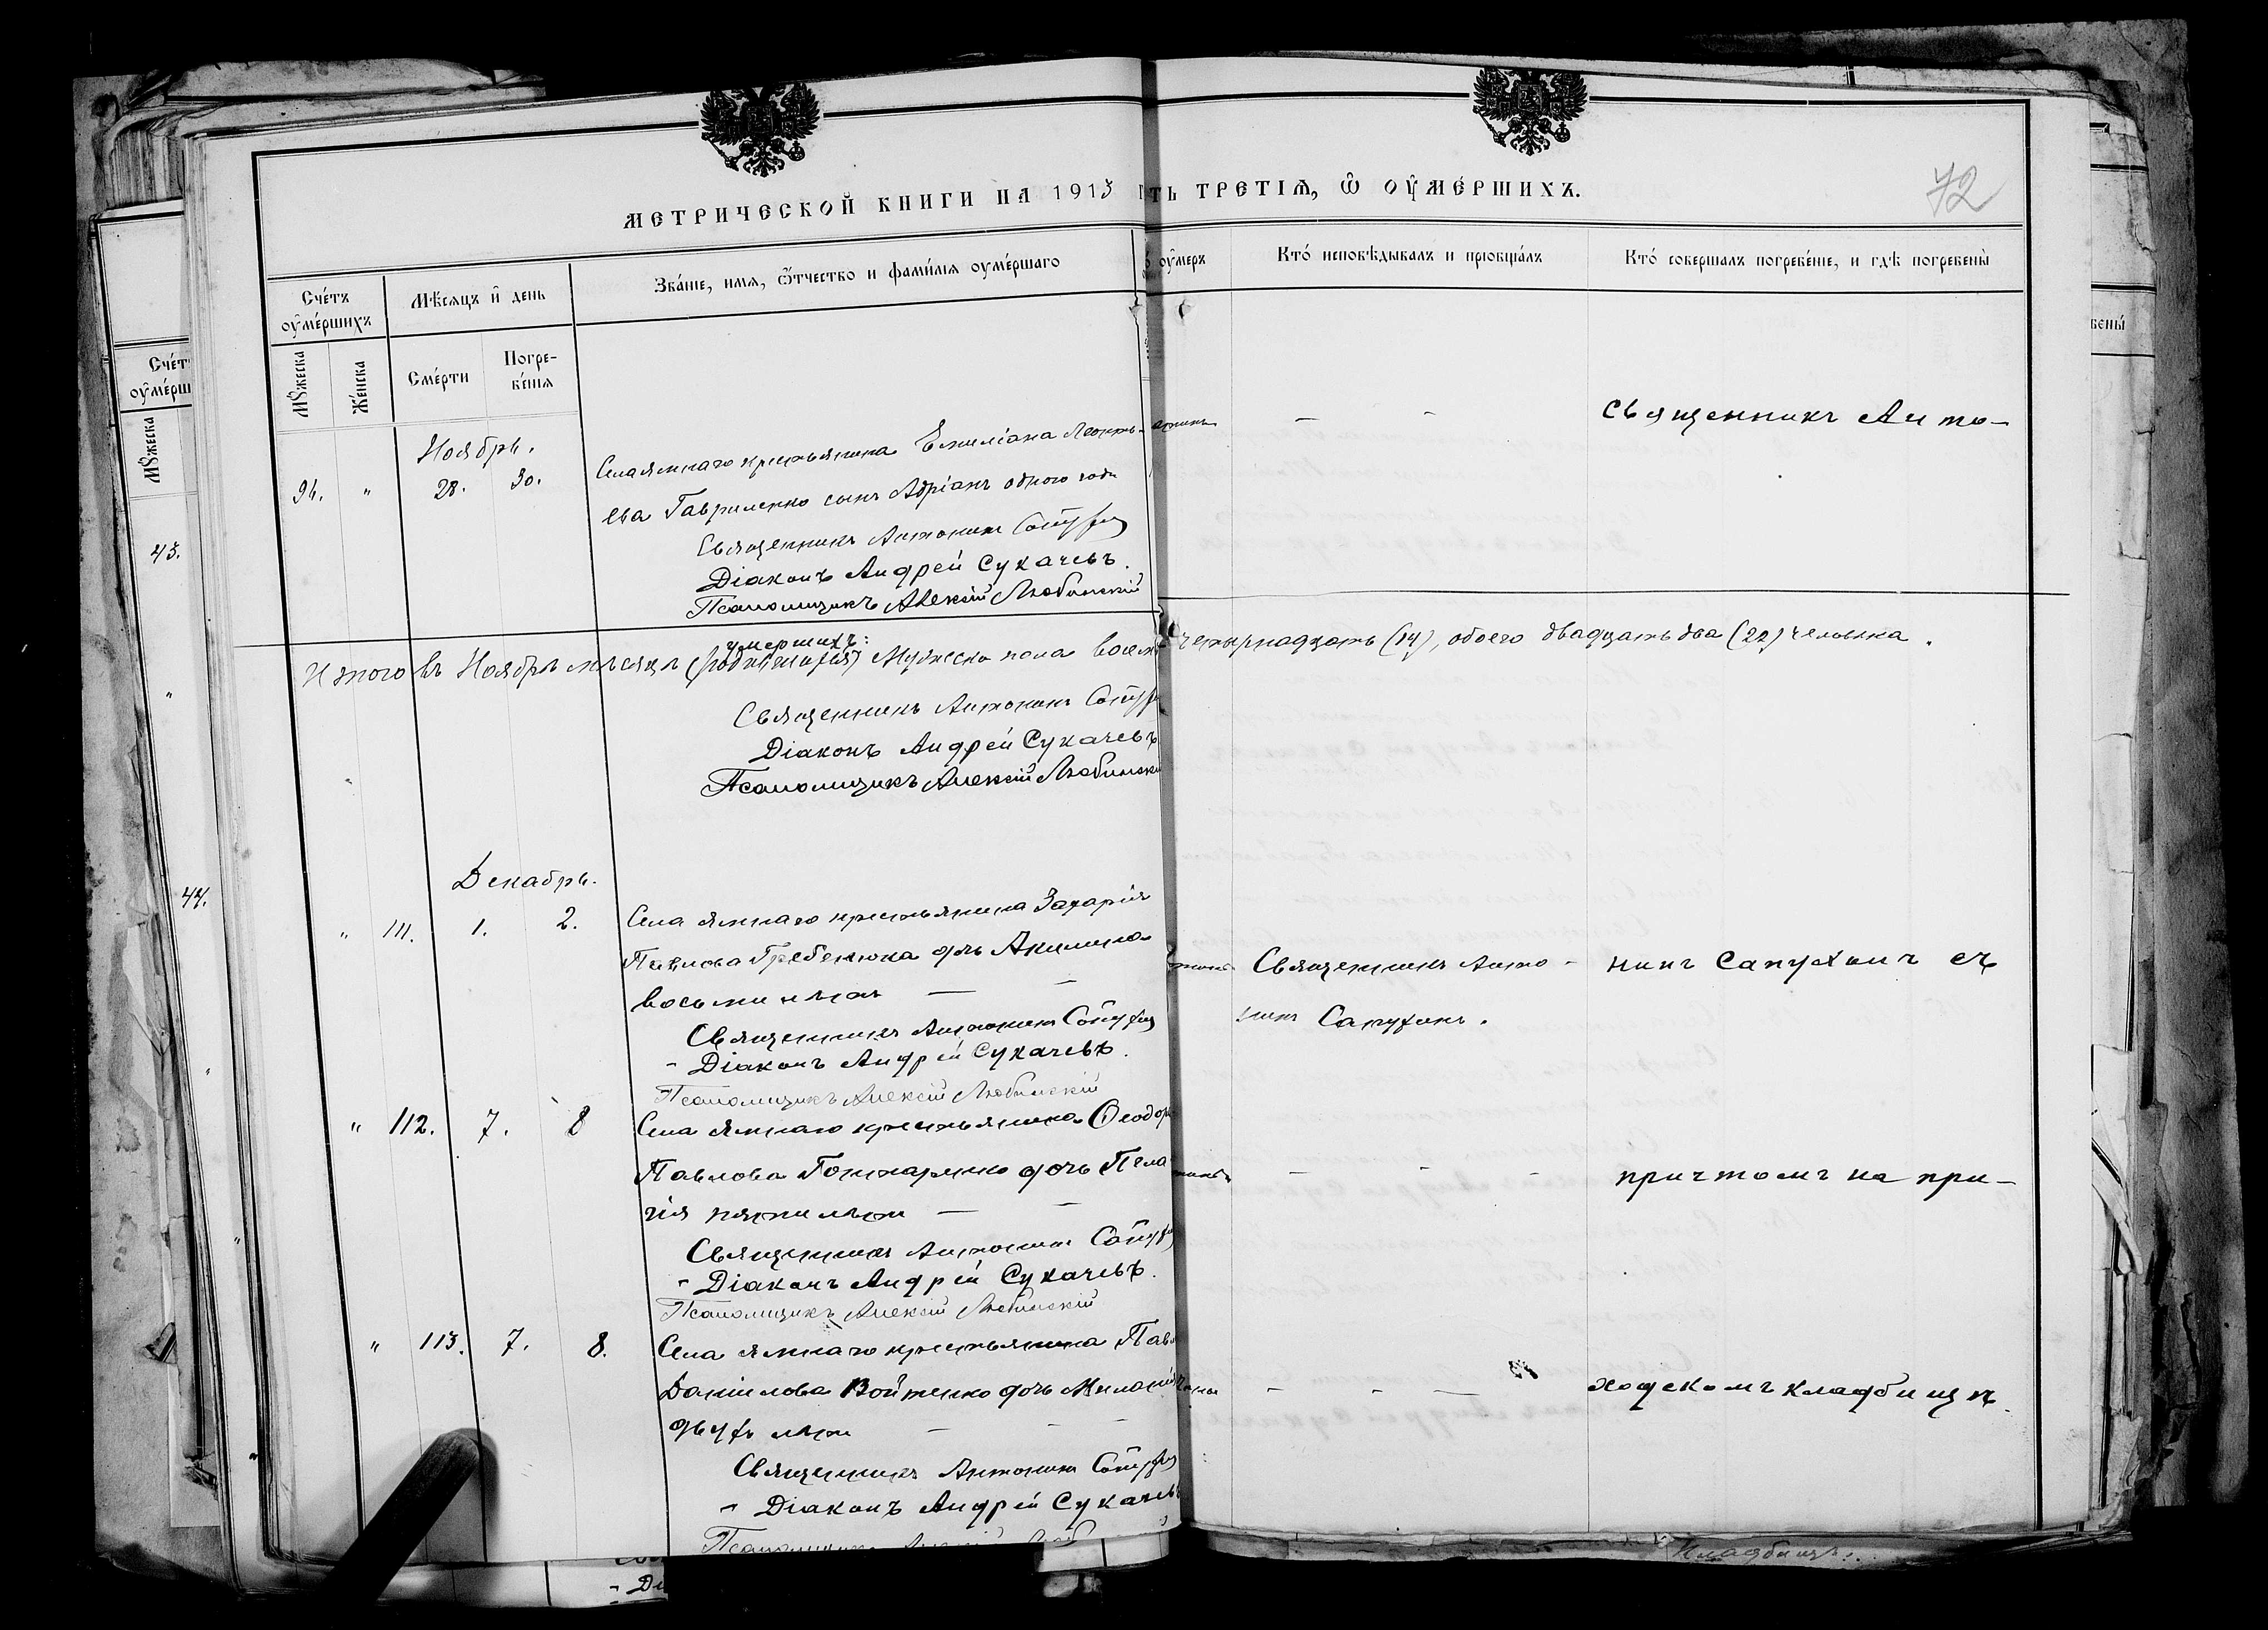 МЕТРИЧЕСКОЙ КНИГИ НА 1913
ТЬ ТРЕТІѦ, Ѿ ОУМЕРШИХЪ.
72
Счетъ оумершихъ
Мѣсяцъ и день
Званіе, имя, ѿтчество и фамилія оумершаго
оумеръ
Кто исповѣдывалъ и пріобщалъ
Кто совершалъ погребеніе, и гдѣ погребены
Мꙋжеска
Женска
Смерти
Погре-
бенія
Ноябрь.
91. " 28. 30. Села Ямнаго крестьянина Емиліана Леонть-
ева Гавриленко сынъ Адріанъ одного года
Священникъ Антонинъ
Діаконъ Андрей Сукачевъ.
Псаломщикъ Алексій Любинскій
— —
Священникъ Анто-
Итого въ Ноябрѣ мѣсяцѣ умершихъ: Мужеска пола восемь
четырнадцать (14), обоего двадцать два (22) человѣка.
Священникъ Антонинъ
Діаконъ Андрей Сукачевъ
Псаломщикъ Алексій Любинскі
Декабрь.
" 111. 1. 2. Села Ямнаго крестьянина Захарія
Павлова Гребенюка дочь Акилина
восьми лѣтъ — —
Священникъ Антонинъ
- Діаконъ Андрей Сукачевъ.
Псаломщикъ Алексій Любинскій
Священникъ Анто-
нинъ Сапухинъ.
нинъ Сапухинъ съ
" 112. 7. 8 Села Ямнаго крестьянина Ѳеодор
Павлова Гончаренко дочь Пела-
гія пяти лѣтъ — —
Священникъ Антонинъ
- Діаконъ Андрей Сукачевъ.
Псаломщикъ Алексій Любинскій
— — —
причтомъ на при-
" 113. 7. 8. Села Ямнаго крестьянина Павл
Даніилова Войтенко дочь
двухъ лѣтъ — —
Священникъ Антонинъ
- Діаконъ Андрей Сукачевъ
Псаломщикъ
— — —
ходскомъ кладбищѣ.
43.
44.
Кладбищѣ.